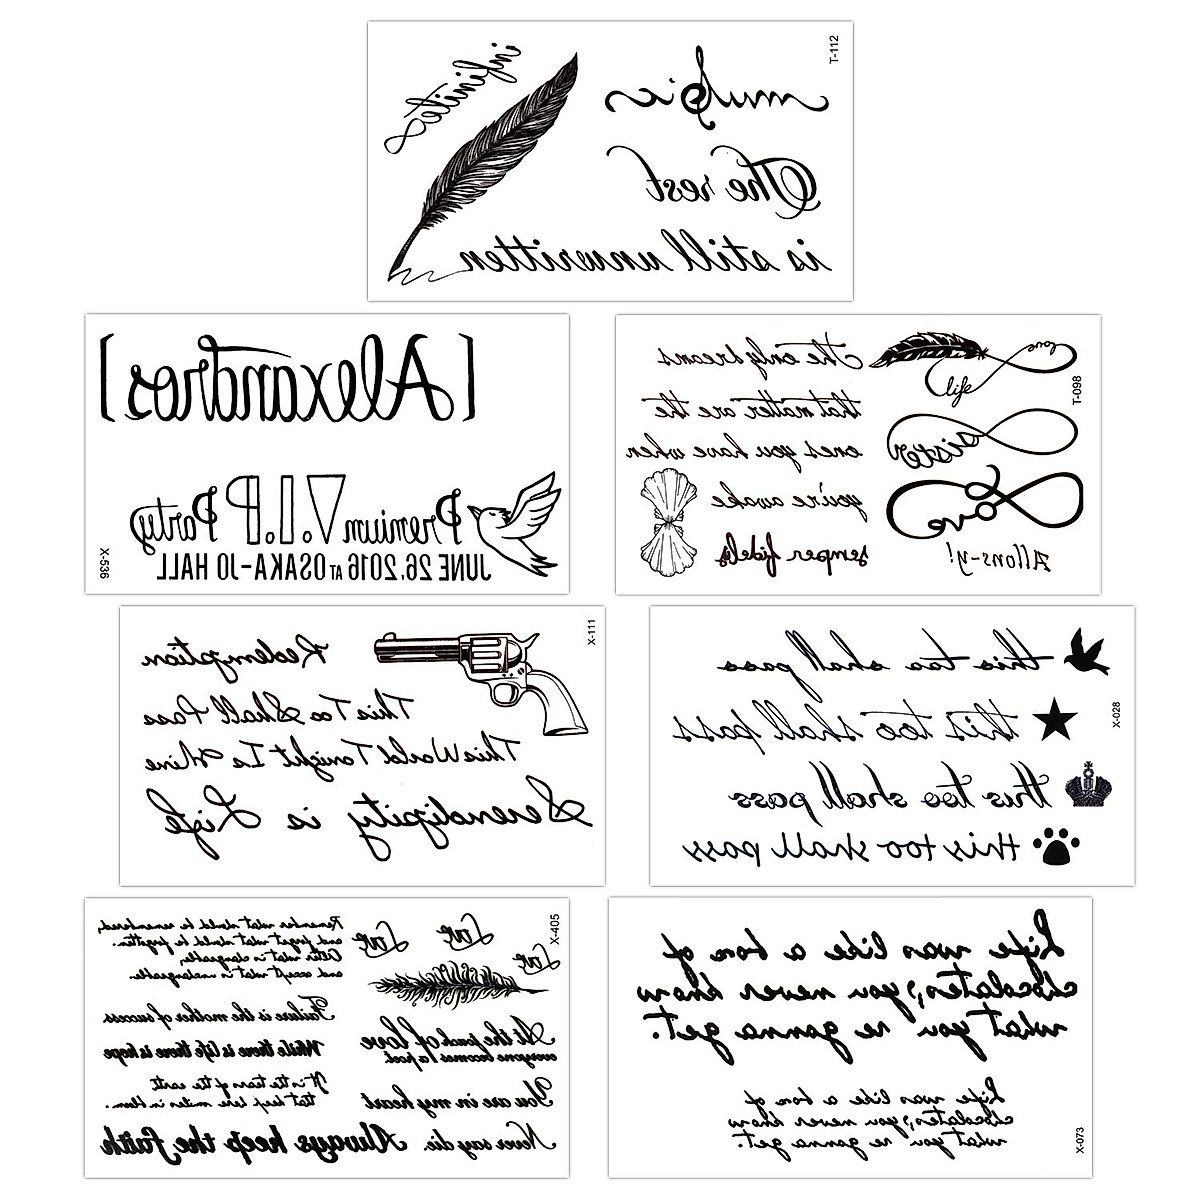 T-112
infinite
music
The rest
is still unwritten
[Alexandros]
Premium V.I.P Party
JUNE 26,2016 AT OSAKA-JO HALL
X-536
love
life
T-098
sister
love
Allons-y!
The only dreams
that matter are the
ones you have when
you're awake
semper fidelis
X-111
Redemption
This Too Shall Pass
This World Tonight Is Mine
Serendipity is Life
this too shall pass
this too shall pass
this too shall pass
this too shall pass
X-028
X-405
Love
Love
Love
Remember what should be remembered,
and forget what should be forgotten.
Alter what is changeable,
and accept what is unchangeable.
Failure is the mother of success
While there is life there is hope
It is the tears of the earth
that keep here smiles in bloom.
At the touch of love
everyone becomes a poet
You are in my heart
Never say die.
Always keep the faith
Life was like a box of
chocolates, you never know
what you're gonna get.
Life was like a box of
chocolates, you never know
what you're gonna get.
X-073